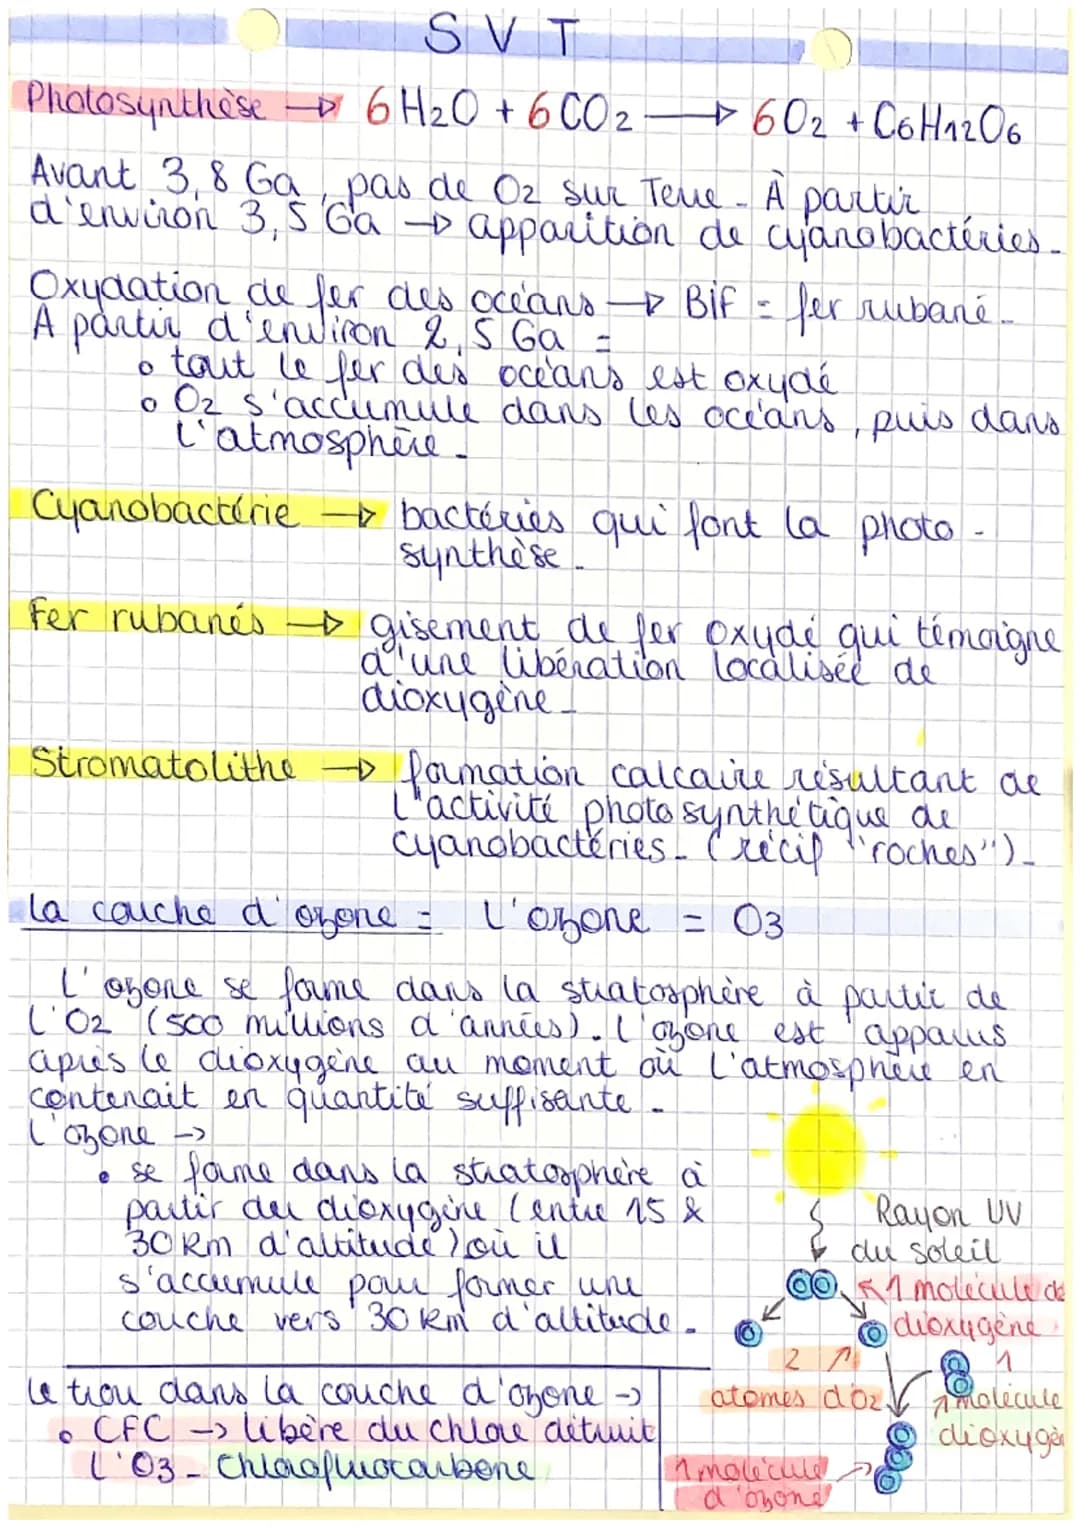 SVT
Photosynthèse → 6 H2O + 6 CO2 → 6O2 + C6H12O6
Avant 3,8 Ga, pas de O2 sur Terre. À partir
d'environ 3,5 Ga → apparition de cyanobactéries.
Oxydation de fer des océans → BiF = fer rubané.
A partir d'environ 2,5 Ga =
o tout le fer des océans est oxydé
o O2 s'accumule dans les océans, puis dans
l'atmosphère.
Cyanobactérie → bactéries qui font la photo -
synthèse.
Fer rubanés → gisement de fer oxydé qui témoigne
d'une libération localisée de
dioxygène.
Stromatolithe → formation calcaire résultant de
l'activité photosynthétique de
cyanobactéries. (récif "roches").
la couche d'ozone = l'ozone = O3
L'ozone se forme dans la stratosphère à partir de
l'O2 (500 millions d'années). L'ozone est apparus
après le dioxygène au moment où l'atmosphère en
contenait en quantité suffisante.
l'ozone ->
• se forme dans la stratosphère à
partir du dioxygène (entre 15 &
30 km d'altitude) où il
s'accumule pour former une
couche vers 30 km d'altitude.
Rayon UV
du soleil
1 molécule de
dioxygène
2
atomes d'O2
1
molécule
dioxygèn
1 molécule
d'ozone
Le trou dans la couche d'ozone ->
o CFC -> libère du chlore détruit
l'O3 - Chlorofluorocarbone